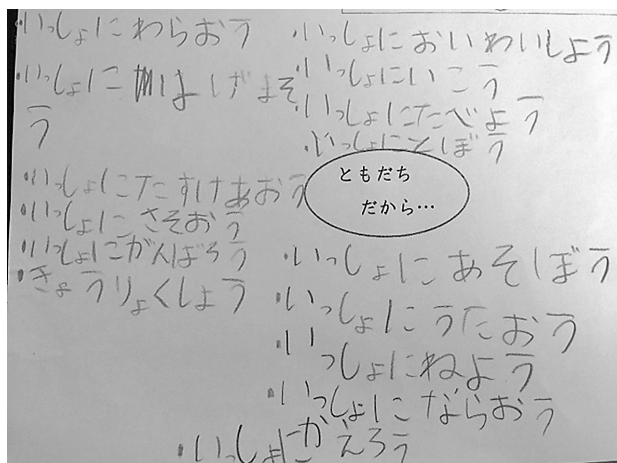 ・いっしょにわらおう
・いっしょにはげまそ
う
・いっしょにたすけあおう
・いっしょにさそおう
・いっしょにがんばろう
・きょうりょくしょう
・いっしょにおいわいしよう
・いっしょにいこう
・いっしょにたべよう
・いっしょにとぼう
ともだち
だから…
・いっしょにあそぼう
・いっしょにうたおう
・いっしょにねよう
・いっしょにならおう
・いっしょにかえろう